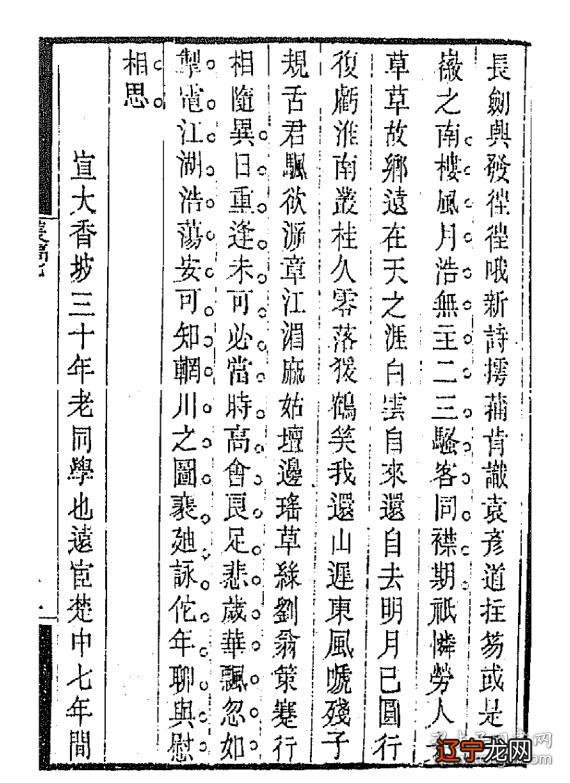 長劒興發徃徃哦新詩摴蒱肯識袁彥道拄笏或是
徽之南樓風月浩無主二三騷客同襟期祇憐勞人
草草故鄉遠在天之涯白雲自來還自去明月已圓行
復虧淮南叢桂久零落猨鶴笑我還山遲東風唬殘子
規舌君颿欲泝章江湄麻姑壇邊瑤草綠劉翁策蹇行
相隨異日重逢未可必當時高會良足悲歲華飄忽如
掣電江湖浩蕩安可知輞川之圖裴廸詠佗年聊與慰
相思
宣大香坡三十年老同學也遠宦楚中七年間
辽宁龙网